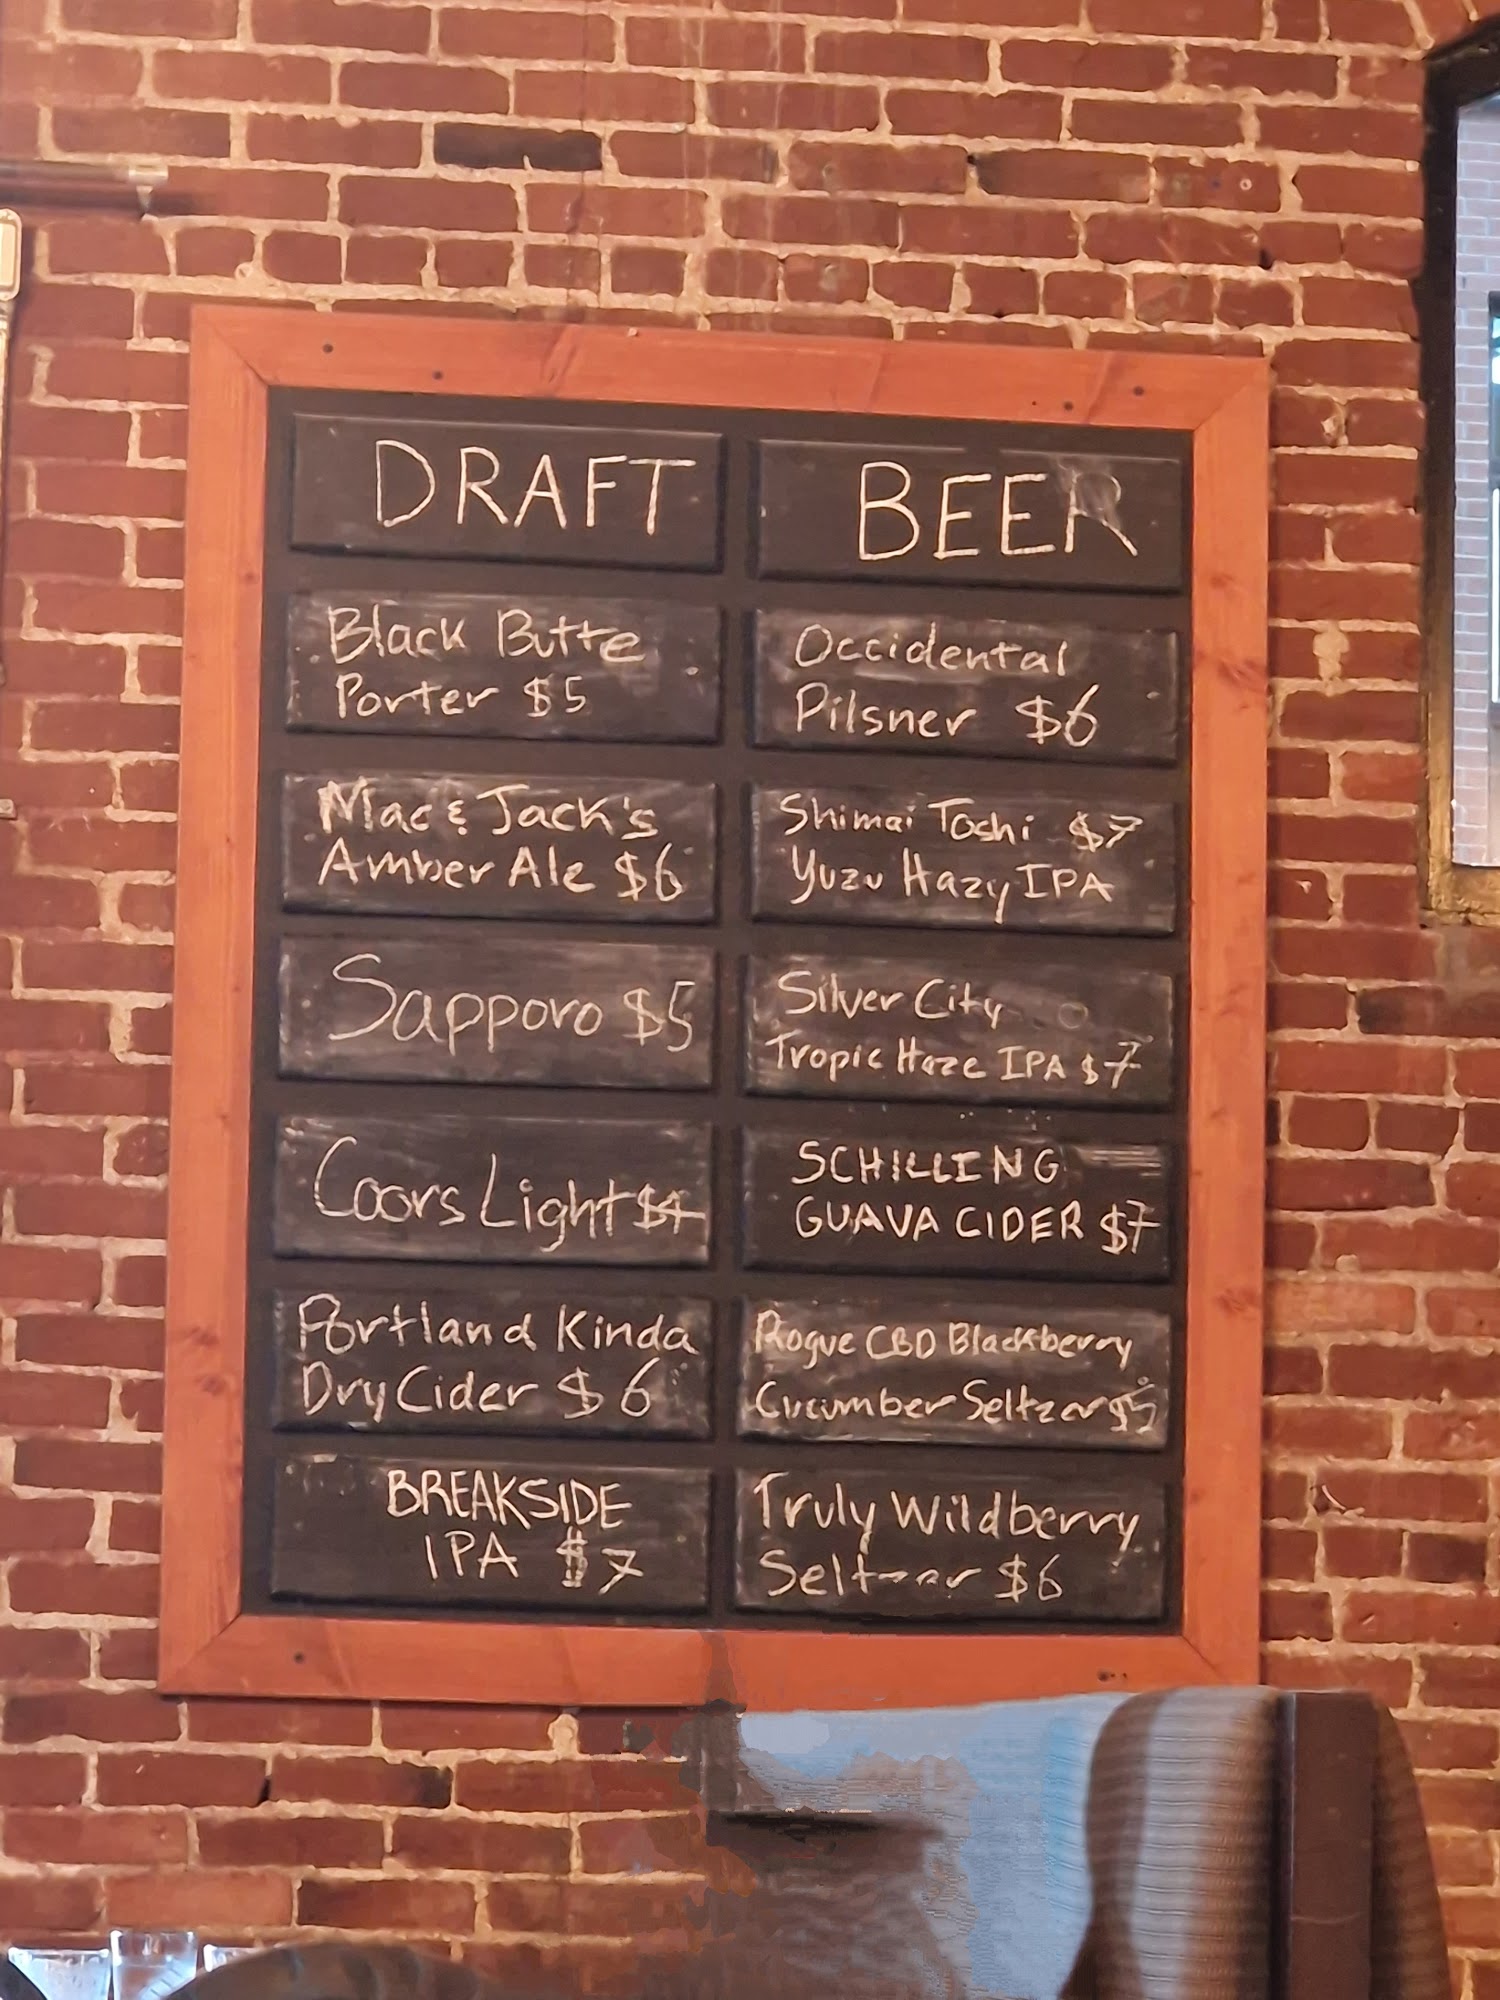 DRAFT BEER
Black Butte
Porter $5
Mac & Jack's
Amber Ale $6
Sapporo $5
Coors Light $4
Portland Kinda
Dry Cider $6
BREAKSIDE
IPA $7
Occidental
Pilsner $6
Shimai Toshi $7
Yuzu Hazy IPA
Silver City
Tropic Haze IPA $7
SCHILLING
GUAVA CIDER $7
Rogue CBD Blackberry
Cucumber Seltzer $5
Truly Wildberry
Seltzer $6